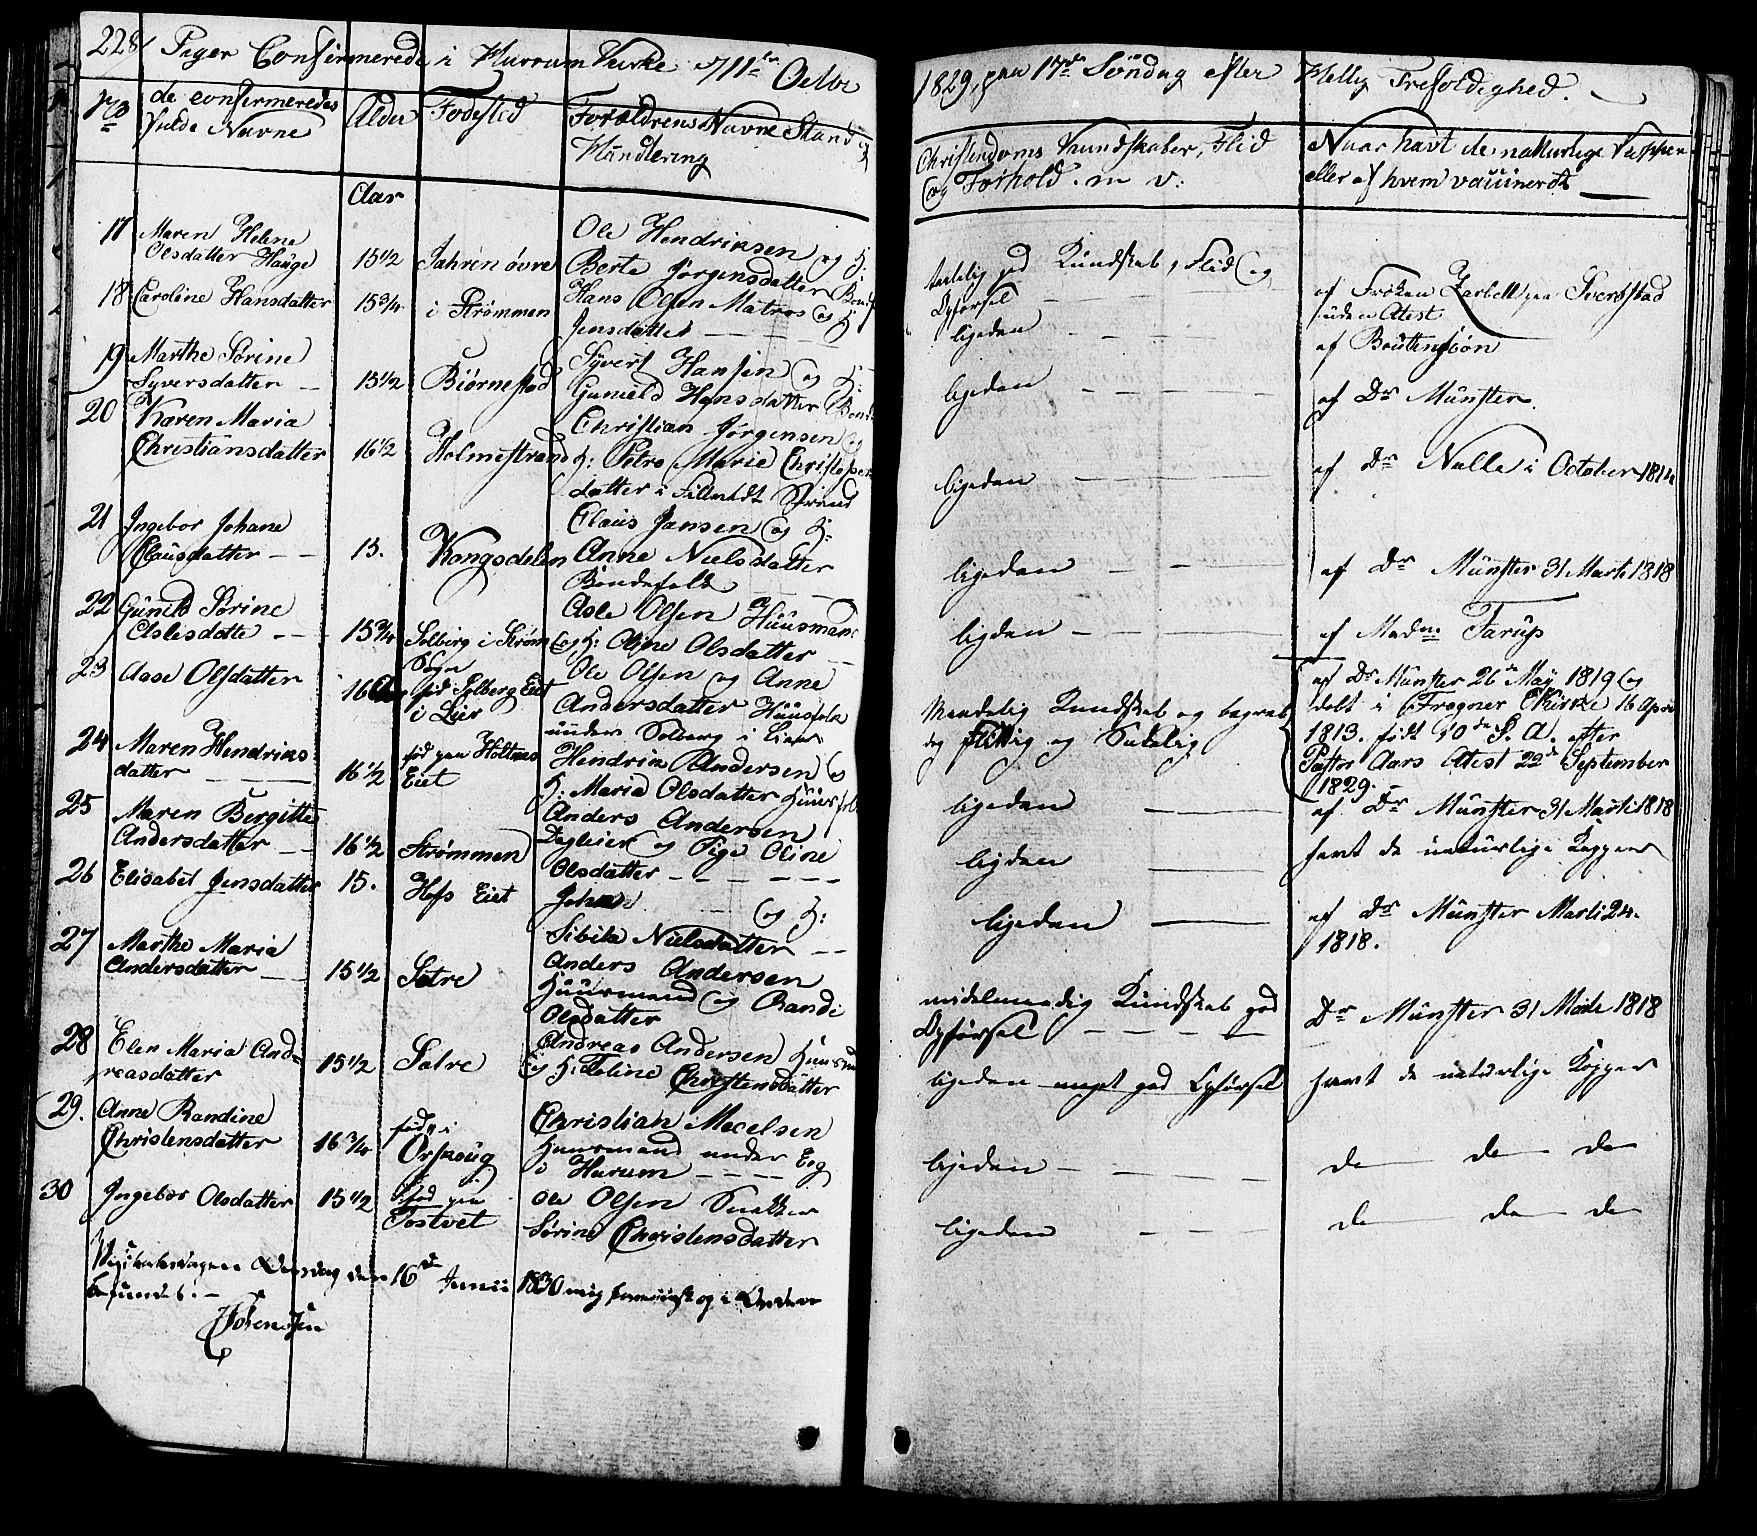 228 Piger Confirmerede i Hurrum Kirke 11te Octbr
1829, paa 17de Söndag efter Hellig Trefoldighed.
No
de confirmeredes
fulde Navne
Alder
Födested
Forældrens Navne Stand og
Handlering
Christendoms Kundskaber, Flid
og Forhold. m v:
Naar havt de naturlige Kopper
eller af hvem vaccineret
Aar
17 Maren Helene
Olsdatter Hauge
15 1/2 Jahren övre
Ole Hendriksen og H:
Berte Jörgensdatter
god Kundskab, Flid og
Opförsel
af Fröken
uden Atest
18 Caroline Hansdatter 15 3/4 i Strömmen
Hans Olsen Matros og H:
Jensdatter
ligedan
af
19 Marthe Sörine
Syversdatter 15 1/2 Biörnestad
Syvert Hansen og H:
Gunield Hansdatter
ligedan
af Dr Münster
20 Karen Maria
Christiansdatter 16 1/2 Holmestrand
Christian Jörgensen og
H: Petro Marie
datter i
ligedan
af Dr Nulle i October 1814
21 Ingebor Johane
Clausdatter 15. Kongsdelen
Claus Jansen og H:
Anne Nielsdatter
Bondefolk
ligedan
af Dr Münster 31 Marti 1818
22 Gunild Sörine
Aslesdatte 15 3/4 Solberg i Ström
Sogn
Asle Olsen Huusmand
og H: Oline Olsdatter
ligedan
af Madme Tarup
23 Aase Olsdatter 16 Aar
föd Solberg Eiet
i Lier
Ole Olsen og Anne
Andersdatter Huusfolk
under Solberg i Lier
Maadelig Kundskab og
flittig og Sædelig
af Dr Münster 26de May 1819 og
döbt i Frogner Kirke 16 April
1813. födt 10de S. A. efter
Pastor Aars Atest 22de September
1829.
24 Maren Hendriks
datter 16 1/2
föd paa Holtnes
Eiet
Hendrik Andersen og
H: Maria Olsdatter Huusfolk
ligedan
af Dr Münster 31 Marti 1818
25 Maren Bergitte
Andersdatter 16 1/2 Strömmen
Anders Andersen
Dagleier og Pige Oline
Olsdatter
ligedan
havt de naturlige Kopper
26 Elisabet Jensdatter 15. Hofs Eiet
og H:
Sibila Nielsdatter
ligedan
af Dr Münster Marti 24.
1818.
27 Marthe Maria
Andersdatter 15 1/2 Sætre
Anders Andersen
Huusmand og Randi
Olsdatter
midelmaadig Kundskab god
Opförsel
Dr Münster 31 Marte 1818
28 Elen Maria And-
reasdatter 15 1/2 Satre
Andreas Andersen
og H: Christensdatter
ligedan meget god Opförsel
havt de naturlige Kopper
29. Anne Randine
Christensdatter 16 3/4
föd i
Orskoug
Christian
Huusmand under Eeg
i Hurum
ligedan
do do do
30 Ingebor Olsdatter 15 1/2
föd paa
Tostvet
Ole Olsen Snekker
Sörine Christensdatter
ligedan
do do do
16de Junii 1830 og i Orden
befundet.